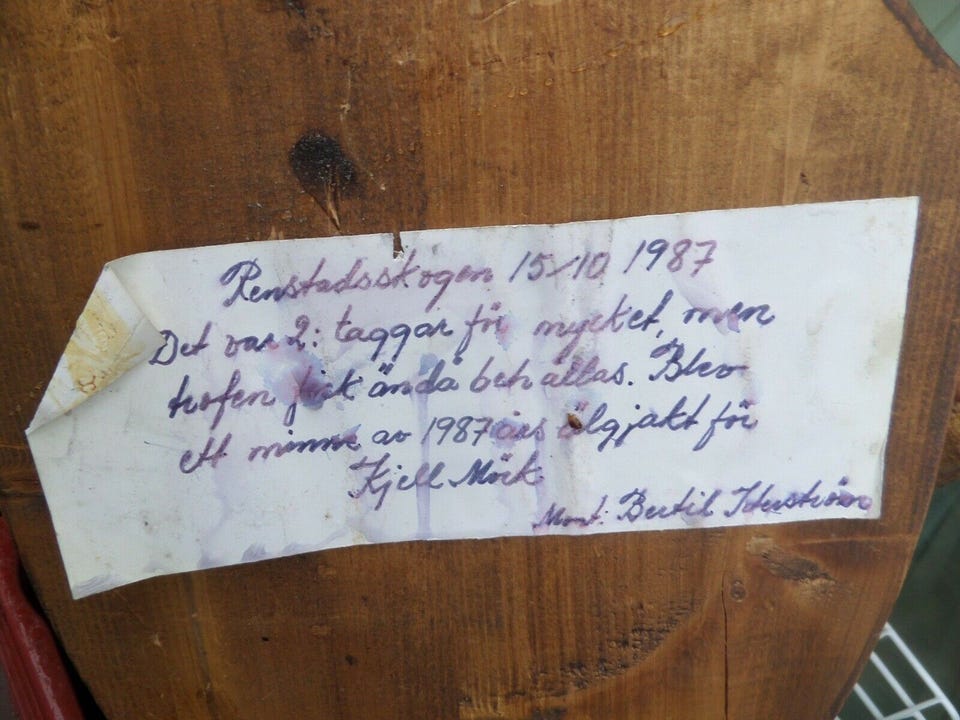 Renstadsskogen 15/10 1987
Det var 2: taggar för mycket, men
trofen fick ändå behållas. Blev
ett minne av 1987 års älgjakt för
Kjell Mörk
Mont: Bertil